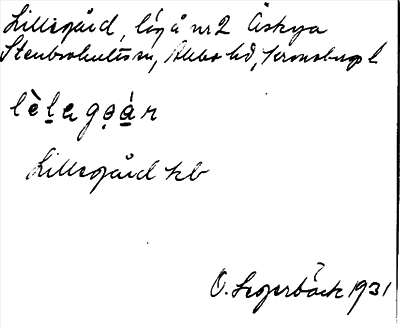 Lillegård, låg å nr 2 Äskya
Stenbrohults sn, Allbo hd, Kronobergs l
Lillegård kb
O. Segerbäck 1931